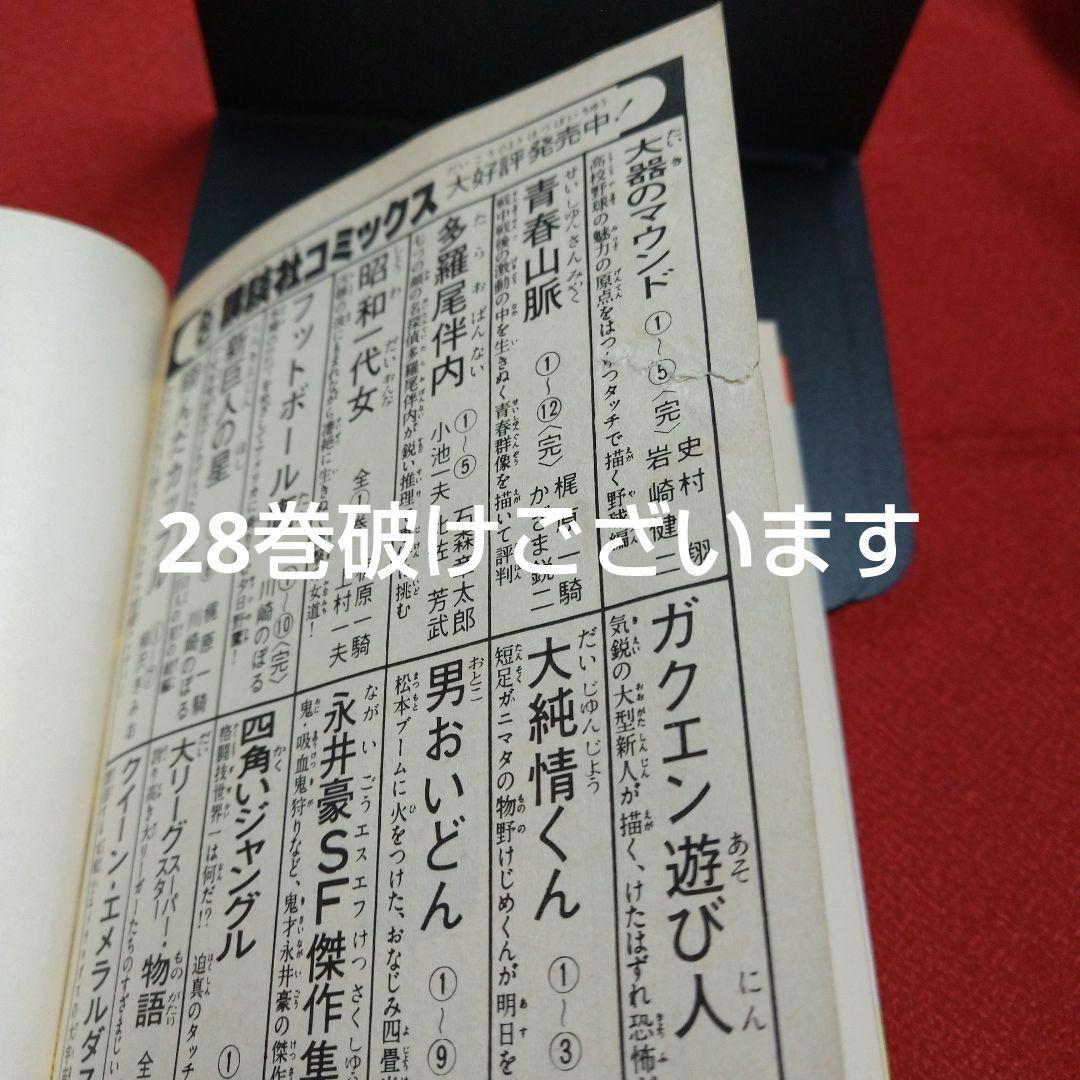 大好評発売中!
講談社コミックス
大器のマウンド ①〜⑤〈完〉 史村翔 岩崎健二
青春山脈 ①〜⑫〈完〉 梶原一騎 かざま鋭二
戦中戦後の激動の中を生きぬく青春群像を描いて評判
多羅尾伴内 ①〜⑤ 石森章太郎
七つの顔の名探偵多羅尾伴内が鋭い推理
昭和一代女
上村一夫
フットボール
川崎のぼる
新巨人の星
梶原一騎
川崎のぼる
28巻破けございます
ガクエン遊び人
気鋭の大型新人が描く、けたはずれ恐怖
大純情くん ①〜③
短足ガニマタの物野けじめくんが明日を
男おいどん ①〜⑨
松本ブームに火をつけた、おなじみ四畳
永井豪SF傑作集
鬼・吸血鬼狩りなど、鬼才永井豪の傑作
四角いジャングル ①
格闘技世界一は何だ!? 迫真のタッチ
大リーグスーパー・スター物語 全
誇り高き大リーガーたちのすさまじい
クイーン・エメラルダス